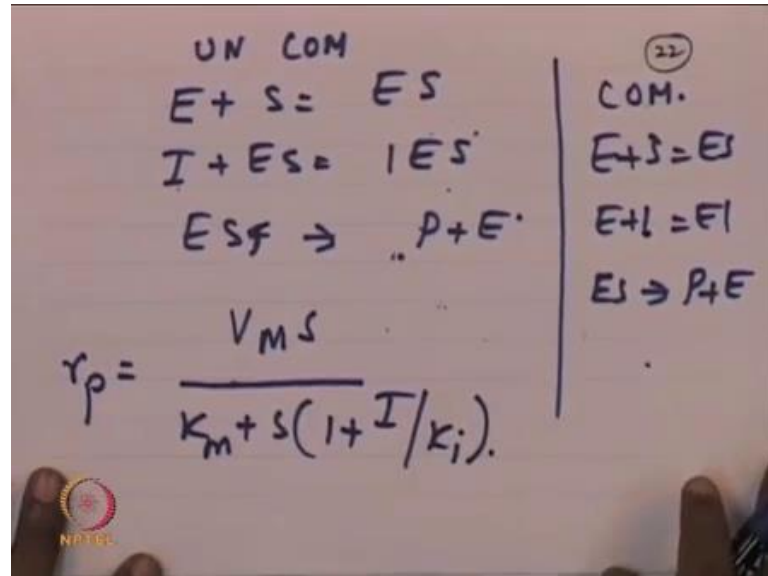 UN COM
E + S = ES
I + ES = IES
ES → P + E
r_p = V_M S / K_m + S(1 + I/K_i).
22
COM.
E+S = ES
E+I = EI
ES → P+E
NPTEL